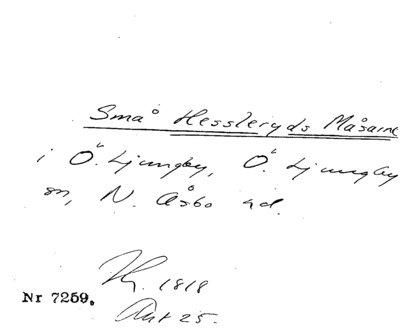 Små Hessleryds Måsarne
i Ö. Ljungby, Ö. Ljungby
sn, N. Åsbo hd.
Hg. 1818
Akt 25.
Nr 7259.